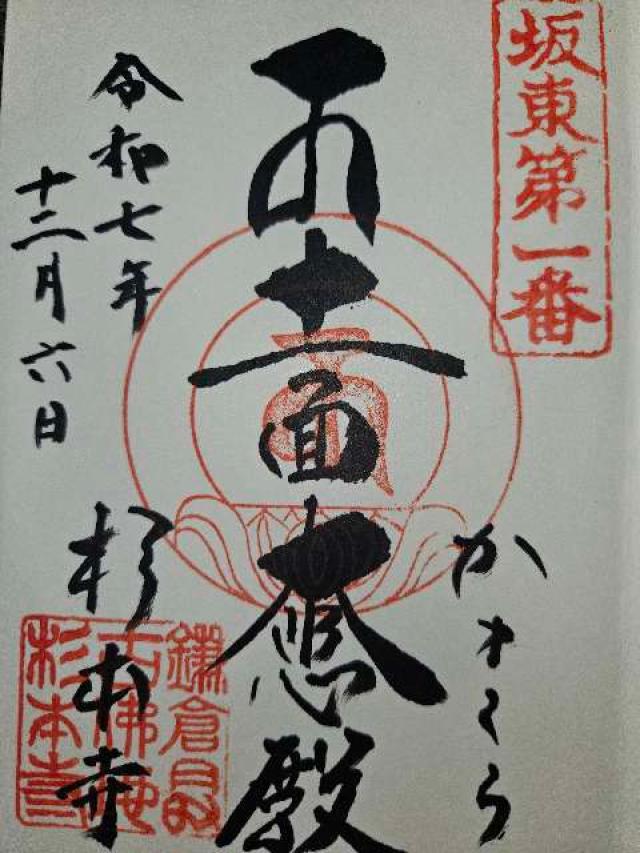 坂東第一番
かまくら
十一面大悲殿
令和七年
十二月六日
杉本寺
鎌倉最
古佛地
杉本寺